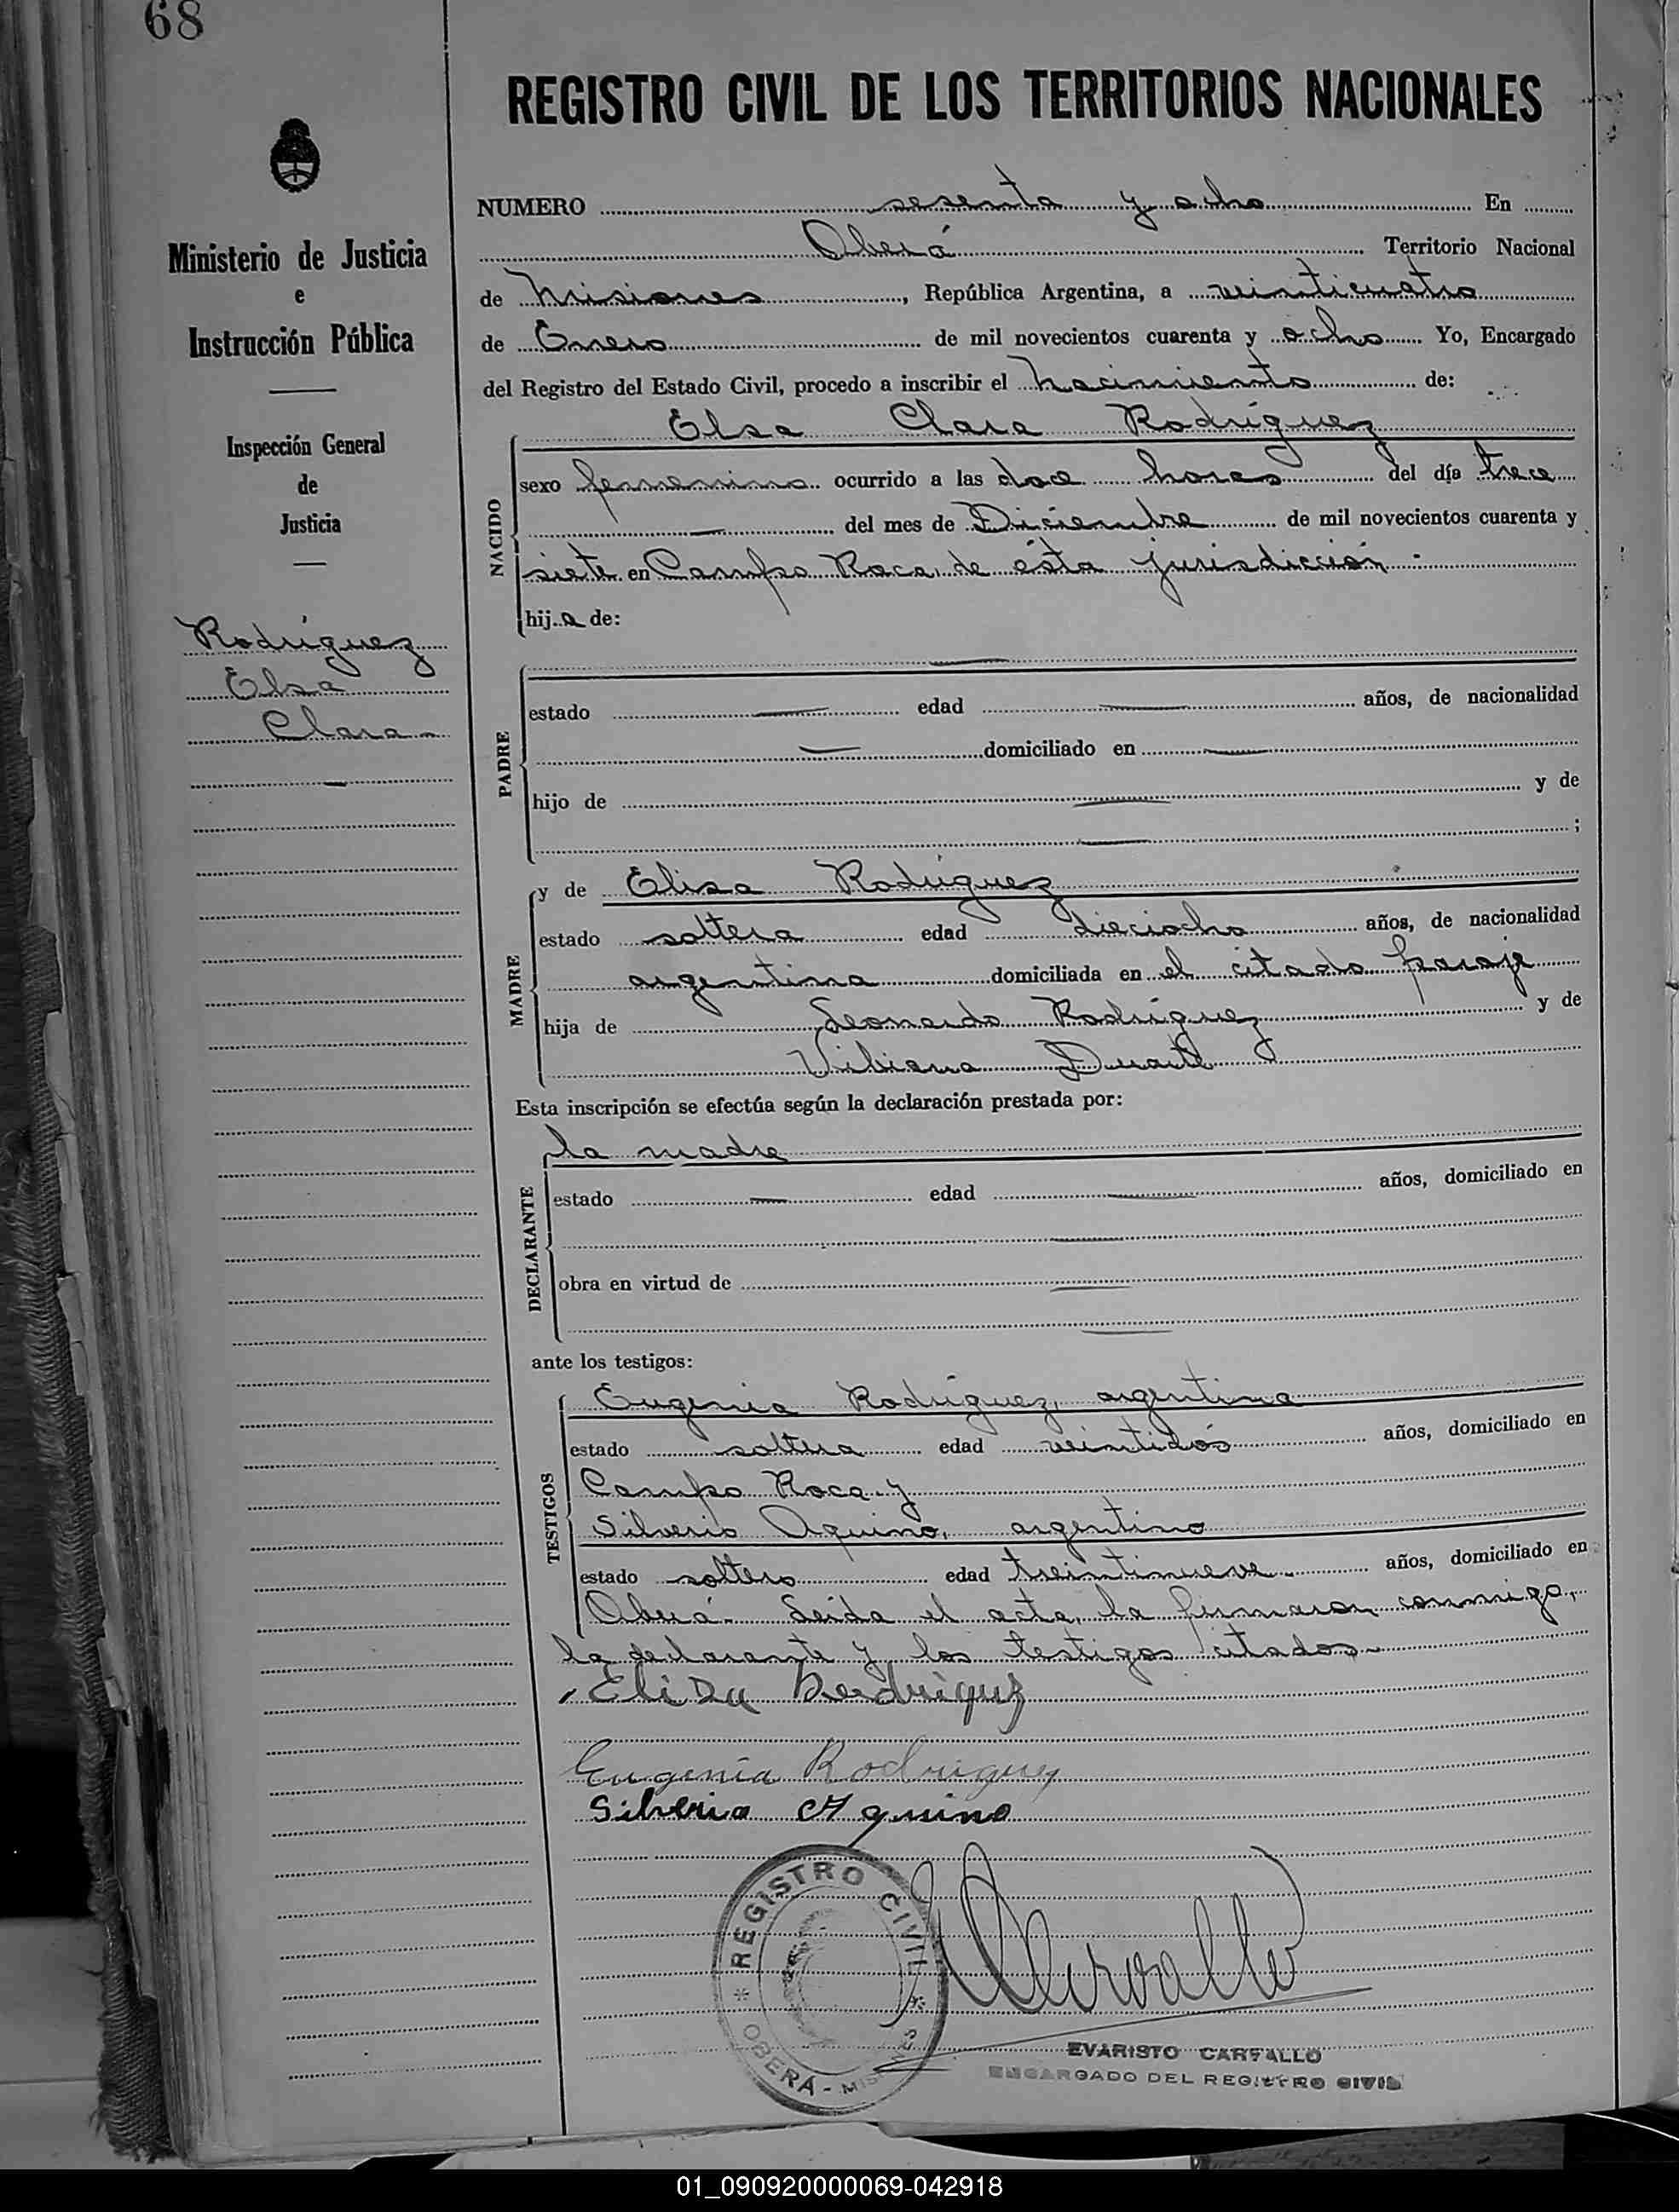 68
REGISTRO CIVIL DE LOS TERRITORIOS NACIONALES
Ministerio de Justicia
e
Instrucción Pública
Inspección General
de
Justicia
Rodríguez
Elsa
Clara
NUMERO sesenta y ocho En
Oberá Territorio Nacional
de Misiones, República Argentina, a veinticuatro
de Enero de mil novecientos cuarenta y ocho Yo, Encargado
del Registro del Estado Civil, procedo a inscribir el nacimiento de:
NACIDO
Elsa Clara Rodríguez
sexo femenino ocurrido a las doce horas del día trece
del mes de Diciembre de mil novecientos cuarenta y
siete en Campo Roca, de ésta jurisdicción
hija de:
PADRE
estado edad años, de nacionalidad
domiciliado en
hijo de y de
;
MADRE
y de Elisa Rodríguez
estado soltera edad dieciocho años, de nacionalidad
argentina domiciliada en el citado paraje
hija de Leonardo Rodríguez y de
Vibiana Duarte
Esta inscripción se efectúa según la declaración prestada por:
DECLARANTE
la madre
estado edad años, domiciliado en
obra en virtud de
ante los testigos:
TESTIGOS
Eugenia Rodríguez, argentina
estado soltera edad veintidós años, domiciliado en
Campo Roca y
Silverio Aquino, argentino
estado soltero edad treintinueve años, domiciliado en
Oberá. Leida el acta, la firmaron conmigo,
la declarante y los testigos citados
Elisa Rodriguez
Eugenia Rodriguez
Silverio Aquino
REGISTRO CIVIL
OBERÁ - MISIONES
Carvallo
EVARISTO CARVALLO
ENCARGADO DEL REGISTRO CIVIL
01_090920000069-042918